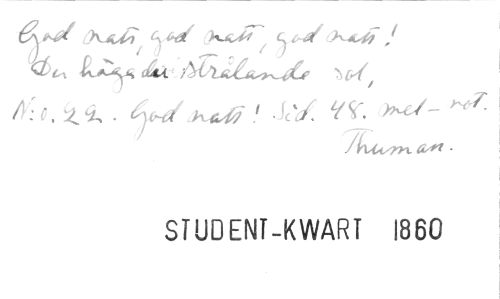 God natt, god natt, god natt!
Du höga du strålande sol,
N:o. 22. God natt! Sid. 48. mel-not.
Thuman.
STUDENT-KWART 1860